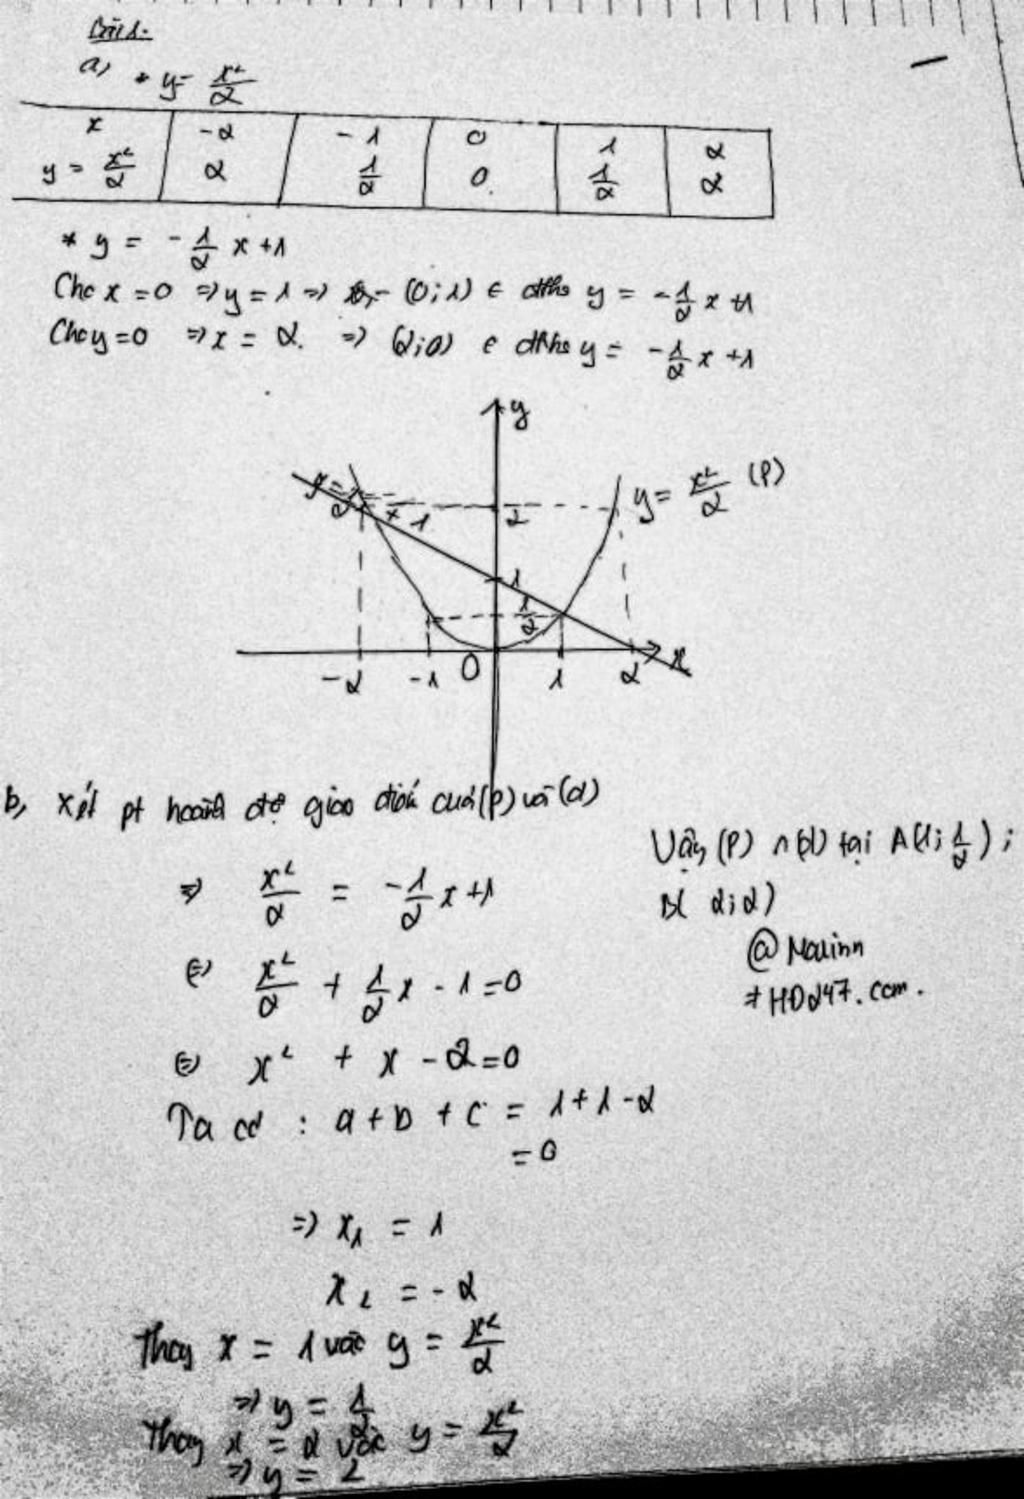 Bài 1.
a, * y = x²/2
x -2 -1 0 1 2
y = x²/2 2 1/2 0 1/2 2
* y = -1/2 x + 1
Cho x = 0 => y = 1 => (0; 1) ∈ đths y = -1/2 x + 1
Cho y = 0 => x = 2. => (2; 0) ∈ đths y = -1/2 x + 1
y
y = x²/2 (P)
+ 1
2
1
1/2
-2 -1 O 1 2 x
b, Xét pt hoành độ giao điểm của (P) và (d)
=> x²/2 = -1/2 x + 1
<=> x²/2 + 1/2 x - 1 = 0
<=> x² + x - 2 = 0
Ta có : a + b + c = 1 + 1 - 2
= 0
=> x₁ = 1
x₂ = -2
Thay x = 1 vào y = x²/2
=> y = 1/2
Thay x = 2 vào y = x²/2
=> y = 2
Vậy (P) ∩ (d) tại A(1; 1/2) ;
B( 2; 2)
@
# HD247.com.